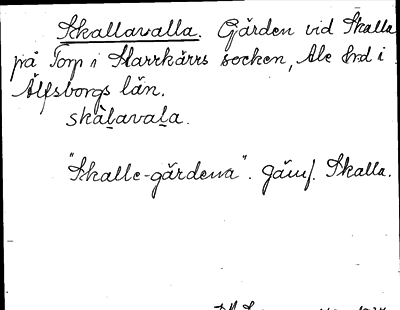 Skallavalla. Gärden vid Skalla
på Torp i Starrkärrs socken, Ale hrd i
Älfsborgs län.
skàḻavaḻa.
"Skalle-gärdena". Jämf. Skalla.